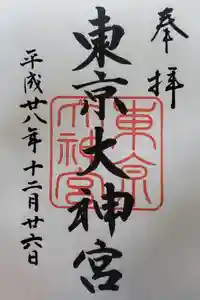 奉拝
東京大神宮
平成廿八年十二月廿六日
東京大神宮